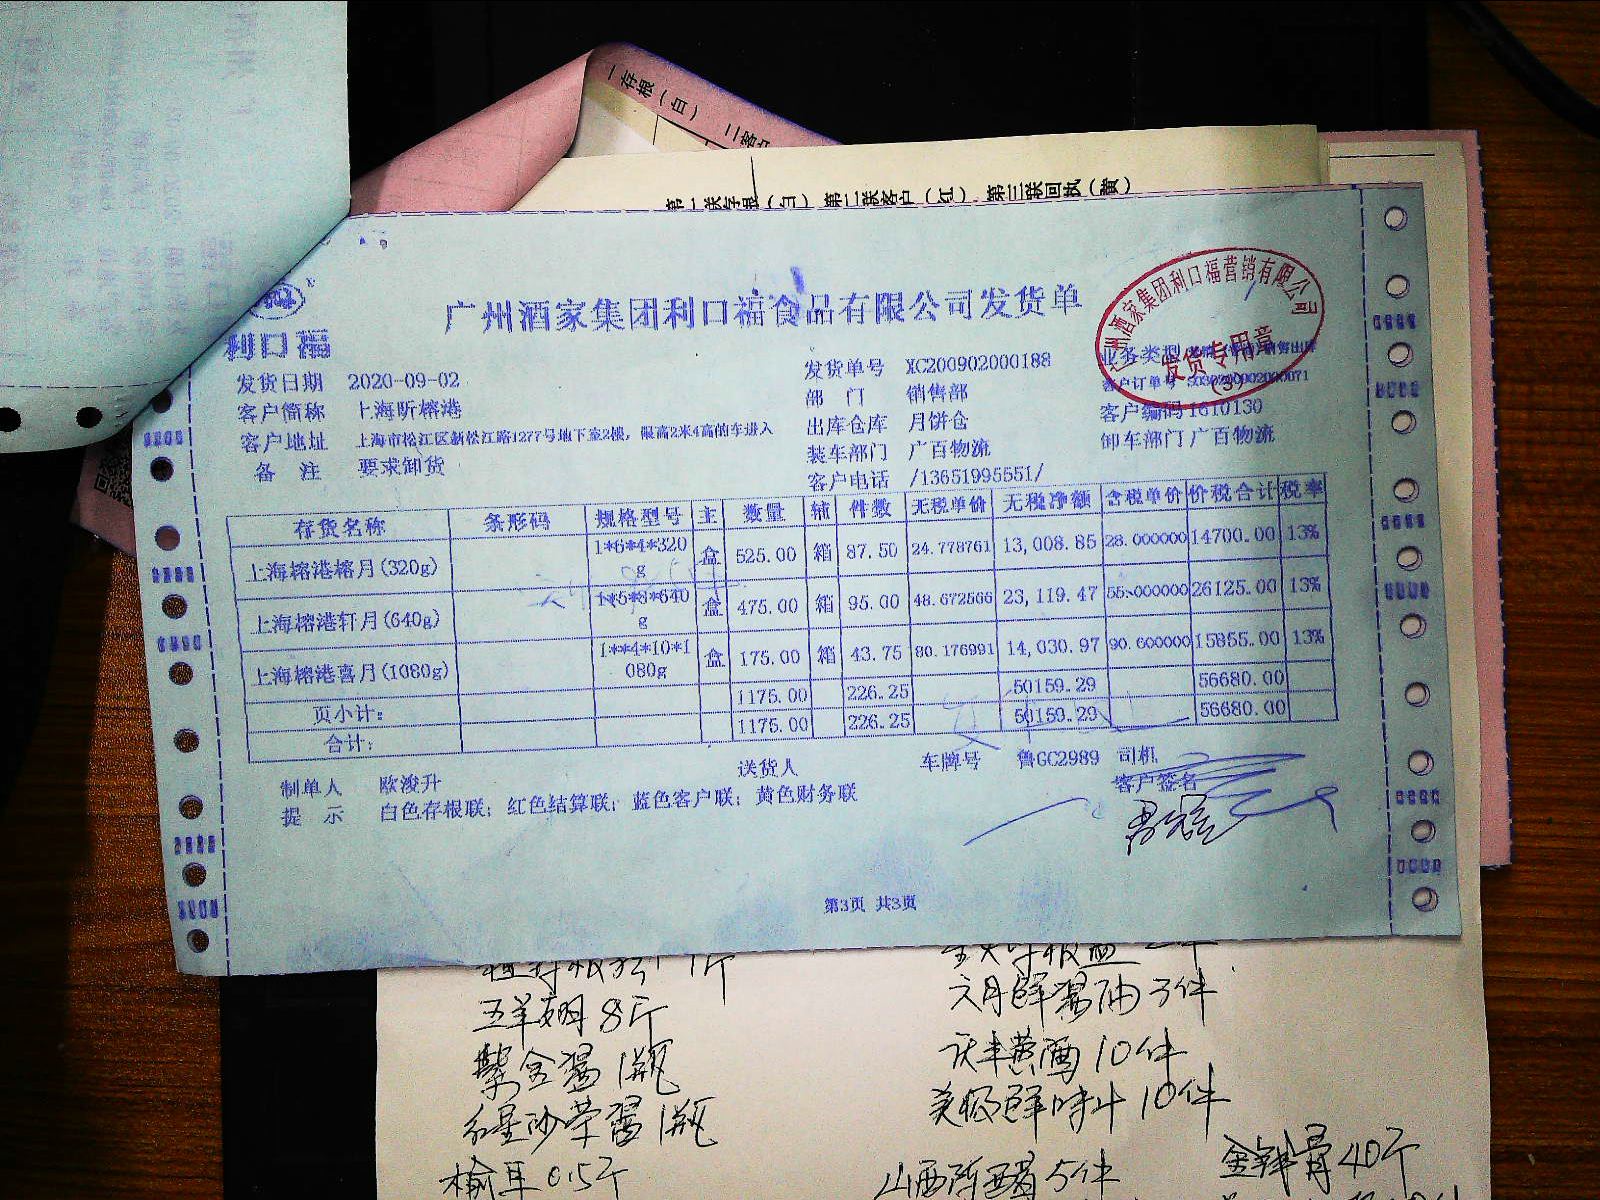 一存根（白）
第一联存根（白）第二联客户（红）.第三联回执（黄）
利口福
广州酒家集团利口福食品有限公司发货单
广州酒家集团利口福营销有限公司
发货专用章
（3）
发货日期 2020-09-02 发货单号 XC200902000188 业务类型
客户简称 上海昕榕港 部 门 销售部 客户订单号
客户地址 上海市松江区新松江路1277号地下室2楼，限高2米4高的车进入 出库仓库 月饼仓 客户编码 1610130
备 注 要求卸货 装车部门 广百物流 卸车部门 广百物流
客户电话 /13651995551/
存货名称 条形码 规格型号 主 数量 辅 件数 无税单价 无税净额 含税单价 价税合计 税率
上海榕港榕月(320g) 1*6*4*320g 盒 525.00 箱 87.50 24.778761 13,008.85 28.000000 14700.00 13%
上海榕港轩月(640g) 1*5*8*640g 盒 475.00 箱 95.00 48.672566 23,119.47 55.000000 26125.00 13%
上海榕港喜月(1080g) 1**4*10*1080g 盒 175.00 箱 43.75 80.176991 14,030.97 90.600000 15855.00 13%
页小计： 1175.00 226.25 50159.29 56680.00
合计： 1175.00 226.25 50159.29 56680.00
制单人 欧浚升 送货人 车牌号 鲁GC2989 司机
提 示 白色存根联；红色结算联；蓝色客户联；黄色财务联 客户签名
第3页 共3页
五羊 8斤 六月鲜酱油 3件
紫金酱 1瓶 黄酒 10件
1瓶 美极鲜味汁 10件
榆耳 0.5斤 山西陈醋 5件 40斤